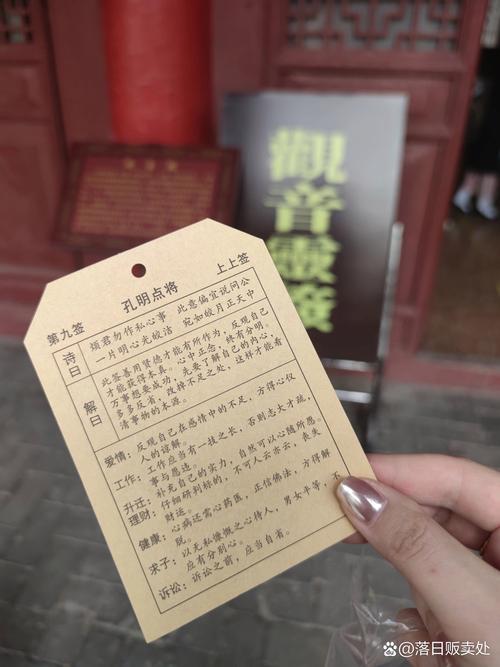 觀音靈簽
第九签
孔明点将
上上签
诗曰
烦君勿作私心事 此意偏宜说问公
一片明心光皎洁 宛如皎月正天中
解曰
此签善用贤德才能有所作为，反观自己
才能获得本真。心中正念，终有分明。
万事想要成功，先要了解自己的内心，
多多反省，改掉不足之处，这样才能看
清事物的本源。
爱情：反观自己在感情中的不足，方得心仪
人的谅解。
工作：工作应当有一技之长，否则志大才疏，
事与愿违。
升迁：补充自己的实力，自然可以心随所愿。
理财：仔细研判标的，不可人云亦云，丧失
财运。
健康：心病还需心药医，正信佛法，方得解
脱。
求子：以无私慷慨之心待人，男女平等，不
应有分别心。
诉讼：诉讼之前，应当自省。
落日贩卖处